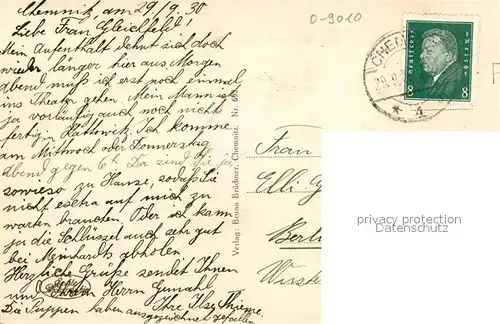 Chemnitz, am 29/9. 30
Liebe Frau Gleichfeld!
Mein Aufenthalt dehnt sich doch
wieder länger hier aus. Morgen
abend muß ich erst noch einmal
ins Theater gehen. Mein Mann ist
ja vorläufig auch noch nicht
fertig in Kattowitz. Ich komme
am Mittwoch oder Donnerstag
abend gegen 6h. Da sind Sie ja
sowieso zu Hause, sodaß Sie
nicht extra auf mich zu
warten brauchen. Oder ich kann
ja die Schlüssel auch sehr gut
bei Meinhardts abholen
Herzliche Grüße sendet Ihnen
und Ihrem Herrn Gemahl
Ihre Ilse Thieme.
Die Puppen haben ausgezeichnet gefallen
Verlag: Bruno Brückner, Chemnitz. Nr.
0-9010
CHEM
* 4
Deutsches Reich
8 8
Frau
Elli G
Berlin
privacy protection
www.ansichtskartenhandel.com